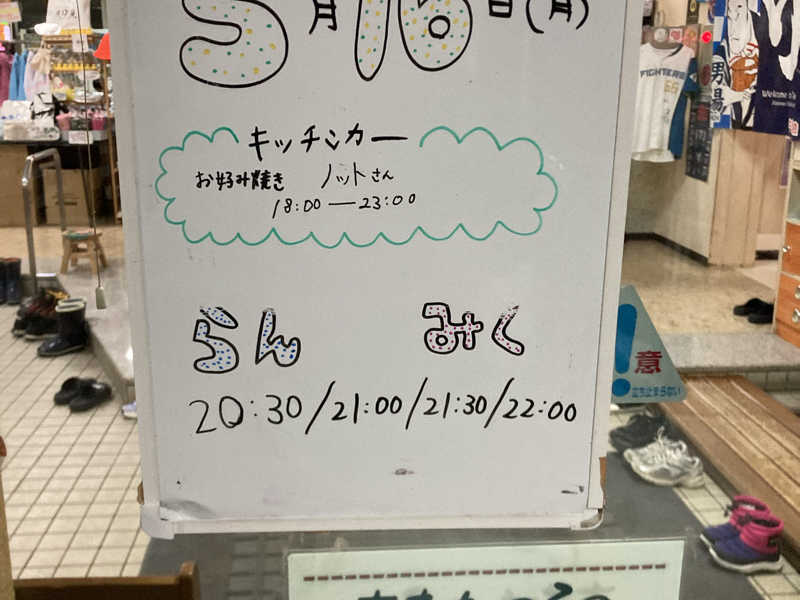 5月16日(月)
キッチンカー
お好み焼き ノットさん
18:00—23:00
らん みく
20:30/21:00/21:30/22:00
FIGHTERS
男湯
意
立ち止まらない